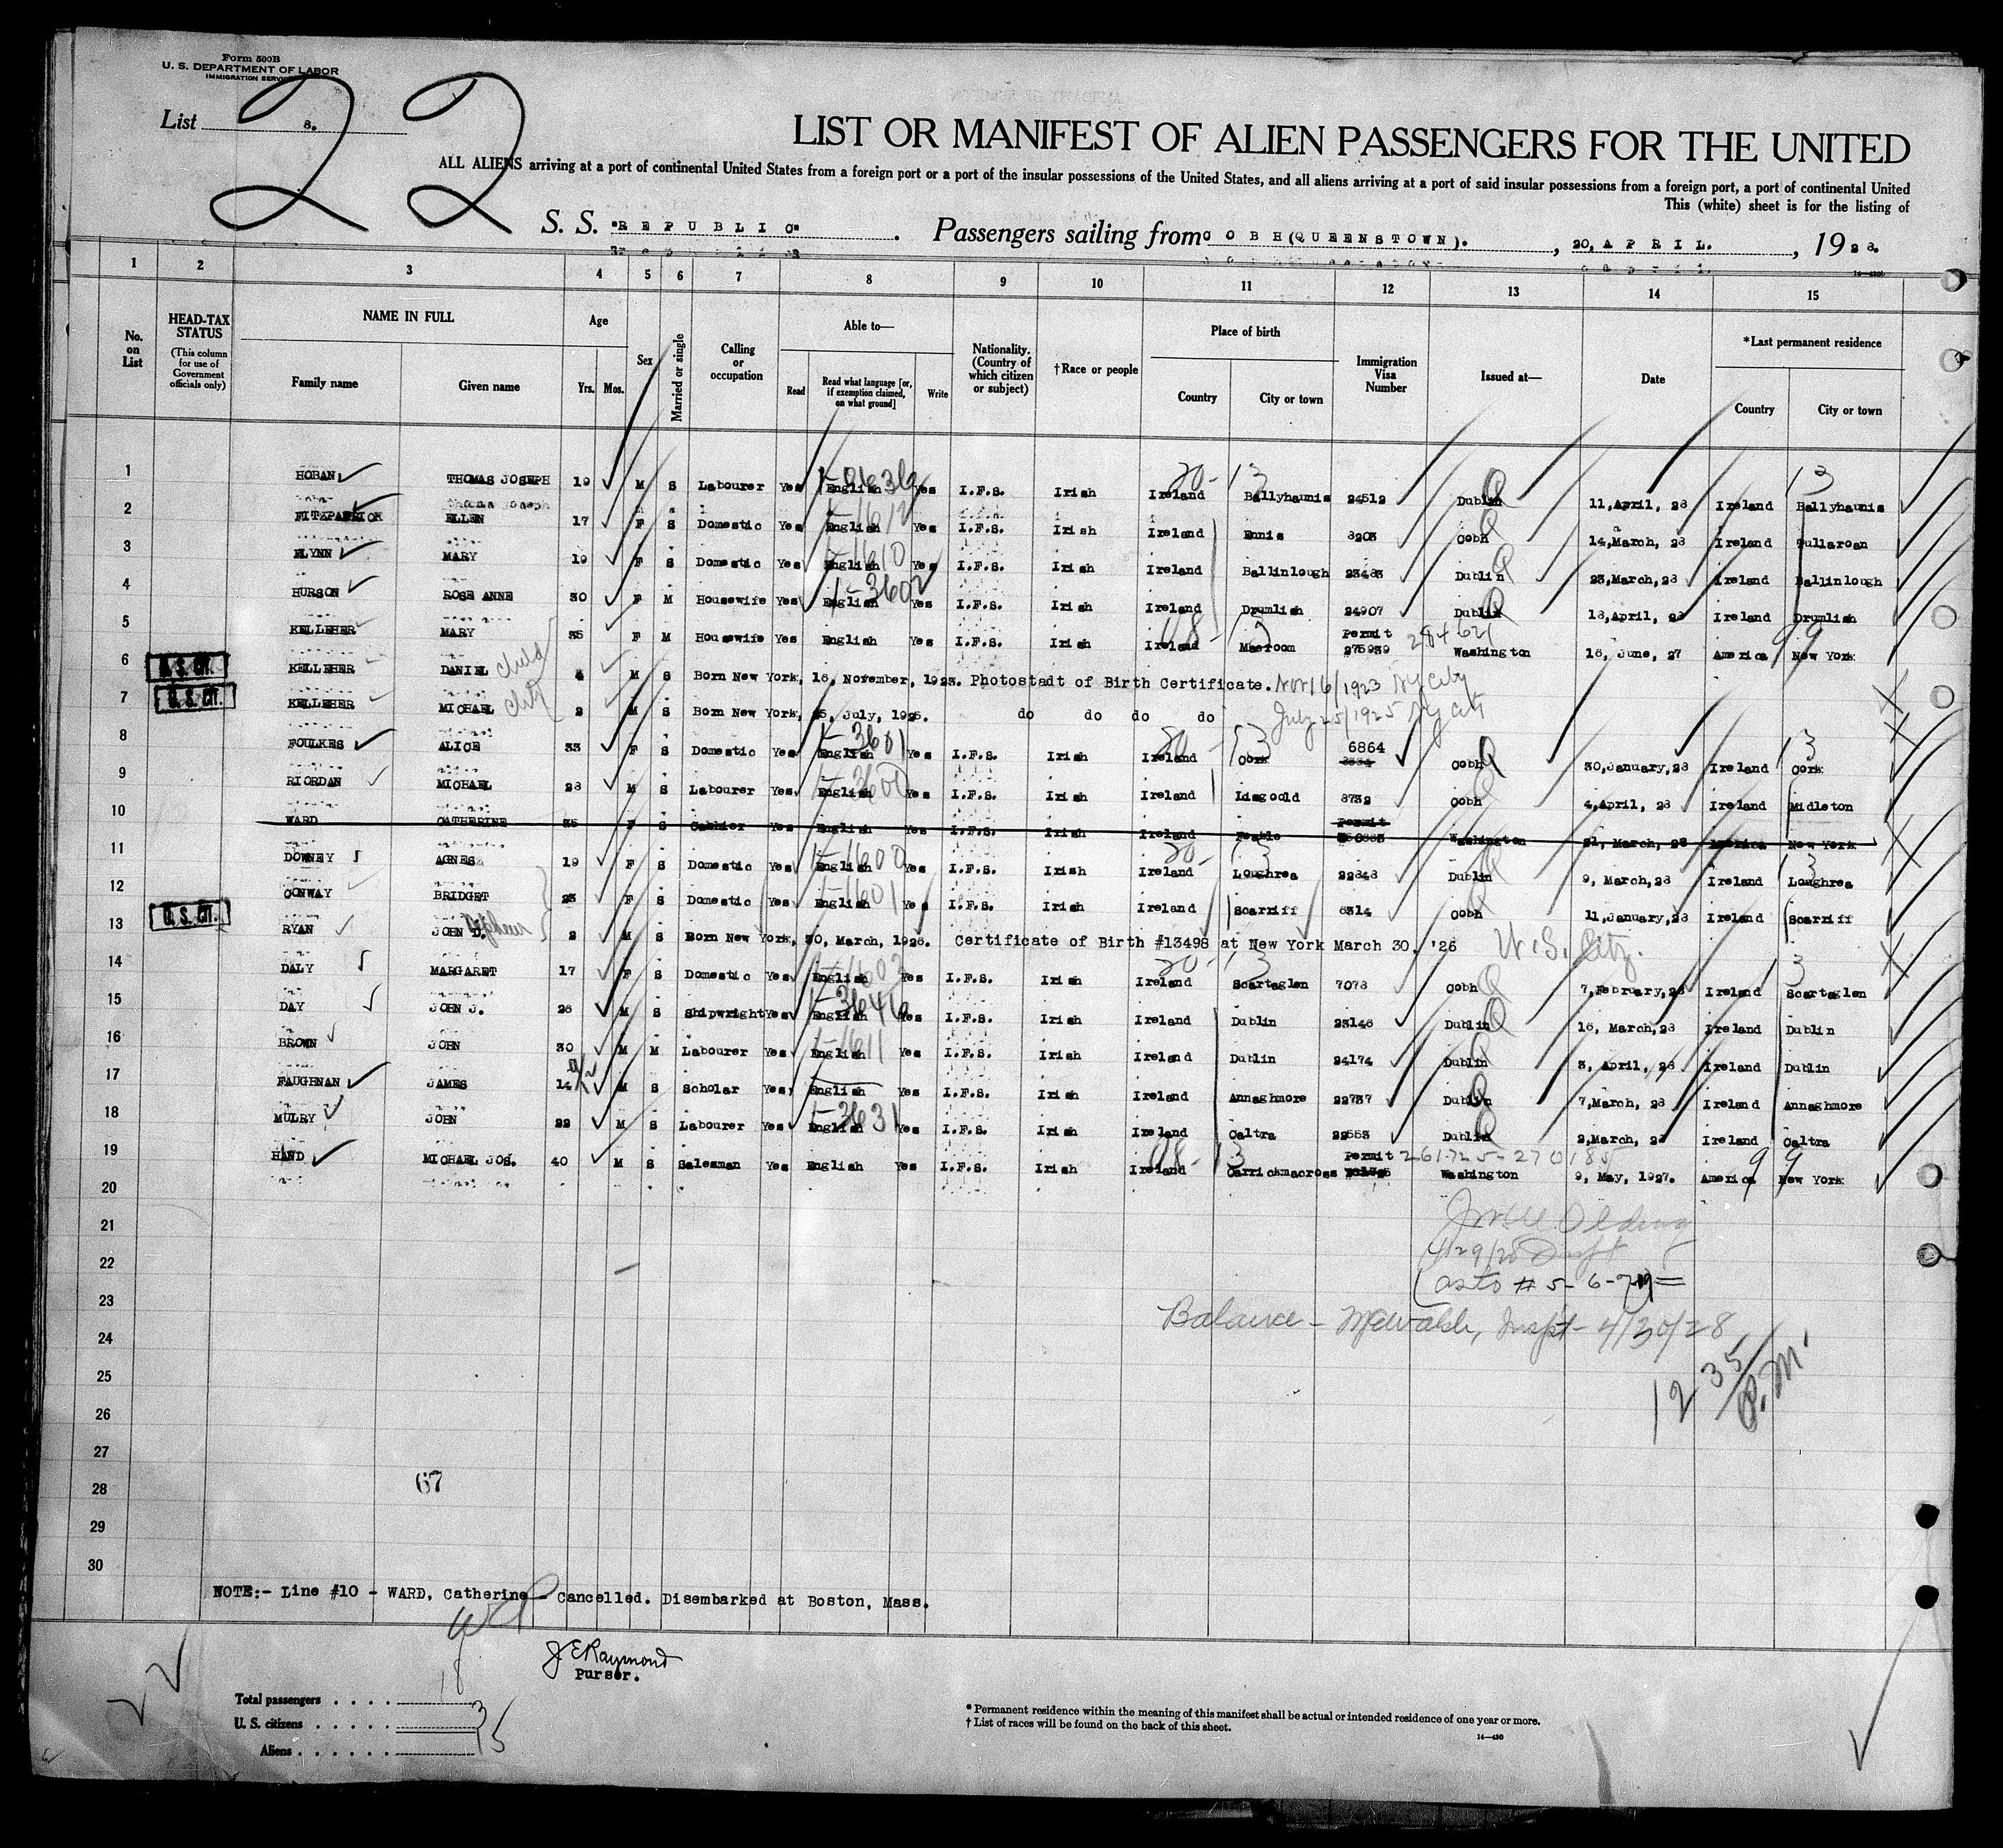 Form 500B
U. S. DEPARTMENT OF LABOR
IMMIGRATION SERVICE
List 8.
22
LIST OR MANIFEST OF ALIEN PASSENGERS FOR THE UNITED
ALL ALIENS arriving at a port of continental United States from a foreign port or a port of the insular possessions of the United States, and all aliens arriving at a port of said insular possessions from a foreign port, a port of continental United
This (white) sheet is for the listing of
S. S. "REPUBLIC" . Passengers sailing from COBH(QUEENSTOWN). , 20, APRIL. , 1928.
1 2 3 4 5 6 7 8 9 10 11 12 13 14 15
No. on List
HEAD-TAX STATUS (This column for use of Government officials only)
NAME IN FULL
Family name
Given name
Age
Yrs. Mos.
Sex
Married or single
Calling or occupation
Able to—
Read
Read what language [or, if exemption claimed, on what ground]
Write
Nationality. (Country of which citizen or subject)
†Race or people
Place of birth
Country
City or town
Immigration Visa Number
Issued at—
Date
*Last permanent residence
Country
City or town
1 HOBAN THOMAS JOSEPH 19 M S Labourer Yes English Yes I.F.S. Irish Ireland Ballyhaunis 24512 Dublin 11,April, 28 Ireland Ballyhaunis
2 FITZPATRICK ELLEN 17 F S Domestic Yes English Yes I.F.S. Irish Ireland Ennis 8203 Cobh 14,March, 28 Ireland Tullaroan
3 FLYNN MARY 19 F S Domestic Yes English Yes I.F.S. Irish Ireland Ballinlough 23483 Dublin 23,March,28 Ireland Ballinlough
4 HURSON ROSE ANNE 30 F M Housewife Yes English Yes I.F.S. Irish Ireland Drumlish 24907 Dublin 18,April, 28 Ireland Drumlish
5 KELLEHER MARY 35 F M Housewife Yes English Yes I.F.S. Irish Ireland Macroom Permit 275939 Washington 16, June, 27 America New York
6 U.S. CIT. KELLEHER DANIEL child 4 M S Born New York, 16, November, 1923. Photostadt of Birth Certificate. Nov 16/1923 NY City
7 U.S. CIT. KELLEHER MICHAEL 2 M S Born New York, 25, July, 1925. do do do do July 25/1925 NY City
8 FOULKES ALICE 33 F S Domestic Yes English Yes I.F.S. Irish Ireland Cork 6864 Cobh 30,January,28 Ireland Cork
9 RIORDAN MICHAEL 28 M S Labourer Yes English Yes I.F.S. Irish Ireland Lisgoold 8732 Cobh 4,April, 28 Ireland Midleton
10 WARD CATHERINE 35 F S Cashier Yes English Yes I.F.S. Irish Ireland Permit Washington 21, March, 28 America New York
11 DOWNEY AGNES 19 F S Domestic Yes English Yes I.F.S. Irish Ireland Loughrea 22843 Dublin 9, March,28 Ireland Loughrea
12 CONWAY BRIDGET 23 F S Domestic Yes English Yes I.F.S. Irish Ireland Scarriff 6314 Cobh 11,January,28 Ireland Scarriff
13 U.S. CIT. RYAN JOHN D. 2 M S Born New York, 30, March, 1926. Certificate of Birth #13498 at New York March 30, '26 U.S. Citz.
14 DALY MARGARET 17 F S Domestic Yes English Yes I.F.S. Irish Ireland Scartaglen 7078 Cobh 7,February,28 Ireland Scartaglen
15 DAY JOHN J. 26 M S Shipwright Yes English Yes I.F.S. Irish Ireland Dublin 23146 Dublin 16, March,28 Ireland Dublin
16 BROWN JOHN 30 M M Labourer Yes English Yes I.F.S. Irish Ireland Dublin 24174 Dublin 3, April, 28 Ireland Dublin
17 FAUGHNAN JAMES 14 M S Scholar Yes English Yes I.F.S. Irish Ireland Annaghmore 22737 Dublin 7,March, 28 Ireland Annaghmore
18 MULRY JOHN 22 M S Labourer Yes English Yes I.F.S. Irish Ireland Caltra 22553 Dublin 2,March, 28 Ireland Caltra
19 HAND MICHAEL JOS. 40 M S Salesman Yes English Yes I.F.S. Irish Ireland Carrickmacross Permit Washington 9, May, 1927. America New York
20
21
22
(as to # 5-6-7-19)
23
Balance - Insp't - 4/30/28
24
25
12 35/P.M.
26
27
28 67
29
30
NOTE:- Line #10 - WARD, Catherine - Cancelled. Disembarked at Boston, Mass.
J E Raymond
Purser.
Total passengers . . . . 18
U. S. citizens . . . . . 3
Aliens . . . . . . 15
* Permanent residence within the meaning of this manifest shall be actual or intended residence of one year or more.
† List of races will be found on the back of this sheet.
14—430